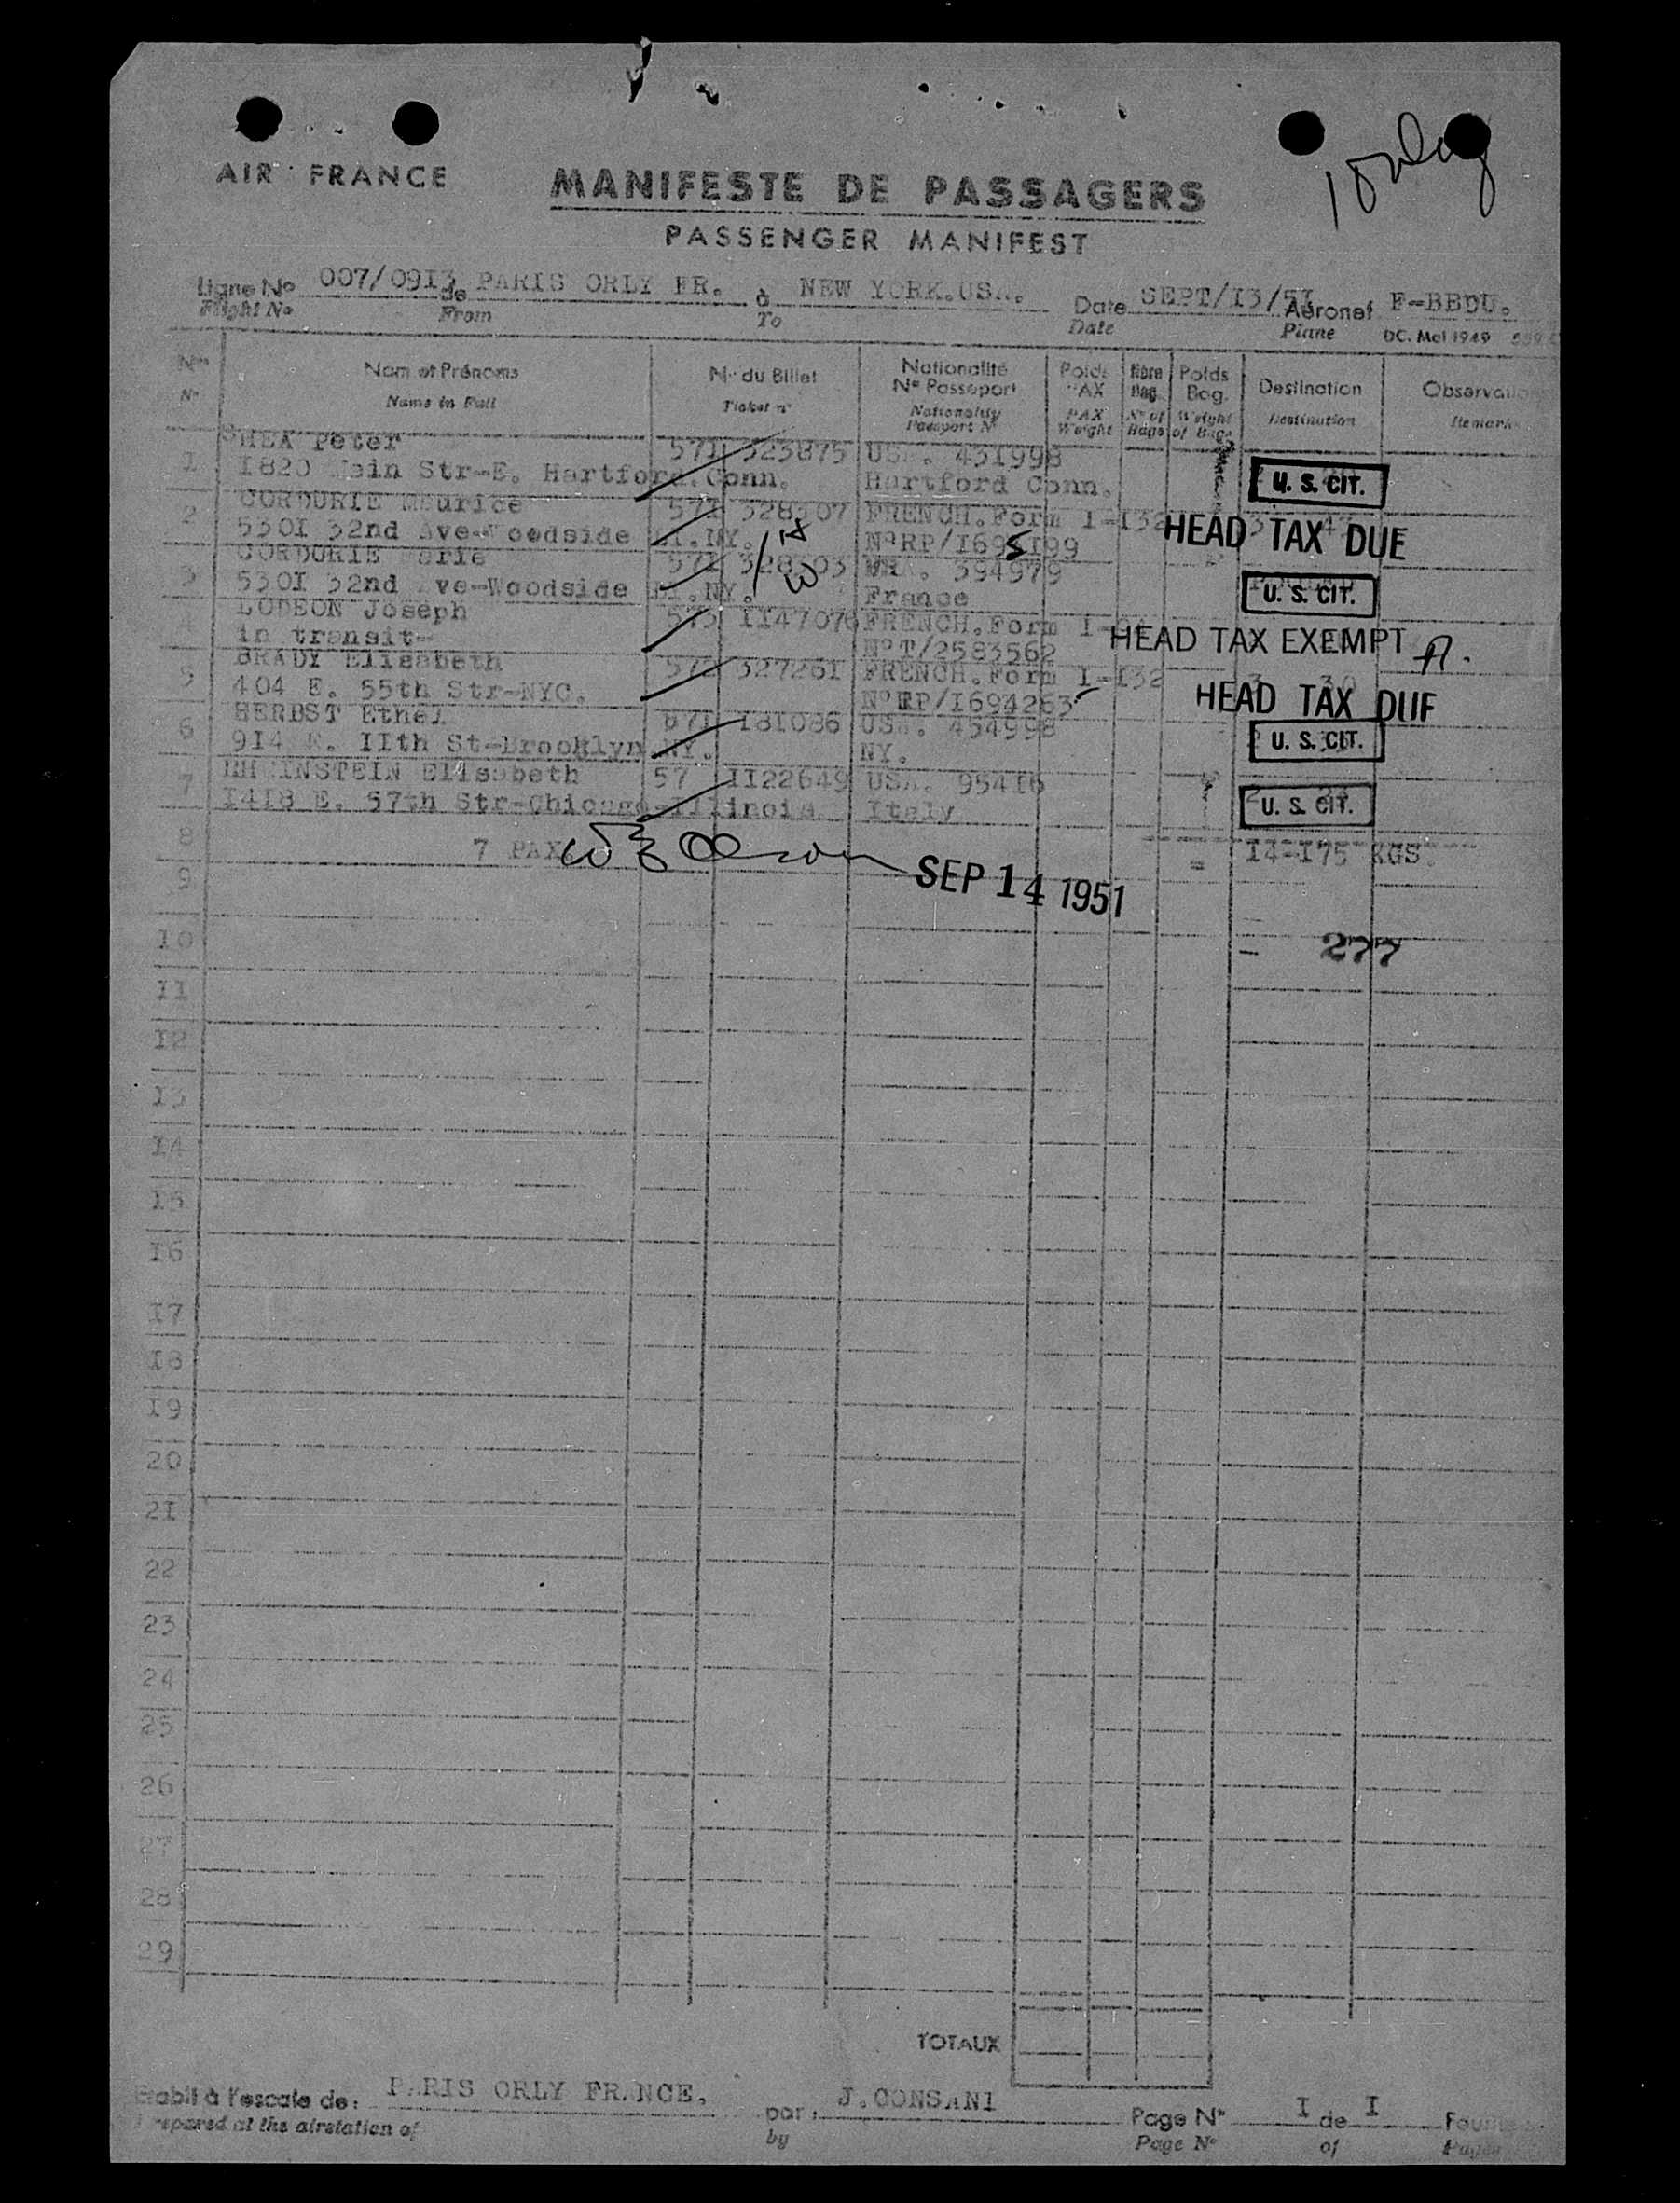 AIR FRANCE
MANIFESTE DE PASSAGERS
PASSENGER MANIFEST
Ligne No 007/0913 de PARIS ORLY FR. à NEW YORK.USA. Date SEPT/I3/5I Aéronef F-BBDU.
Flight No From To Date Plane DC. Mai 1949
Nos Nom et Prénoms No du Billet Nationalité No Passeport Poids PAX Nbre Bag. Poids Bag. Destination Observations
No Name in Full Ticket no Nationality Passport No PAX Weight No of Bags Weight of Bags Destination Remarks
1 SHEA Peter 571 323875 USA. 431998
I820 Main Str-E. Hartford.Conn. Hartford Conn. U. S. CIT.
2 CORDURIE Maurice 571 328307 FRENCH.Form I-I32
530I 32nd Ave-Woodside LI.NY. HEAD TAX DUE
3 CORDURIE Marie 571 328303 394979
530I 32nd Ave-Woodside LI.NY. France U. S. CIT.
4 LODEON Joseph 573 II47076 FRENCH.Form
in transit- NoT/2583562 HEAD TAX EXEMPT
5 BRADY Elisabeth 572 327261 FRENCH.Form I-I32
404 E. 55th Str-NYC. HEAD TAX DUE
6 HERBST Ethel 571 I81086 USA. 454998
9I4 E. IIth St-Brooklyn NY. NY. U. S. CIT.
7 Elisabeth 57 II22649 USA. 95416
I4I8 E. 57th Str-Chicago-Illinois. Italy U. S. CIT.
8 7 PAX = I4-I75 KGS.
9 SEP 14 1951
10 - 277
11
12
13
14
15
16
17
18
19
20
21
22
23
24
25
26
27
28
29
TOTAUX
Etabli à l'escale de: PARIS ORLY FRANCE. par: J.CONSANI Page No I de I
Prepared at the airstation of by Page No of Pages